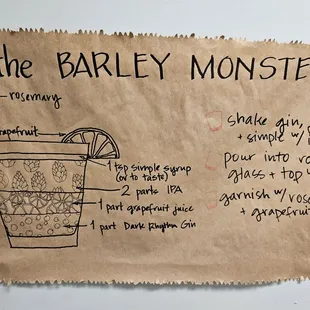 the BARLEY MONSTE
rosemary
grapefruit
1 tsp simple syrup
(or to taste)
2 parts IPA
1 part grapefruit juice
1 part Dark Rhythm Gin
shake gin,
+ simple w/
pour into
glass + top
garnish w/
+ grapefruit